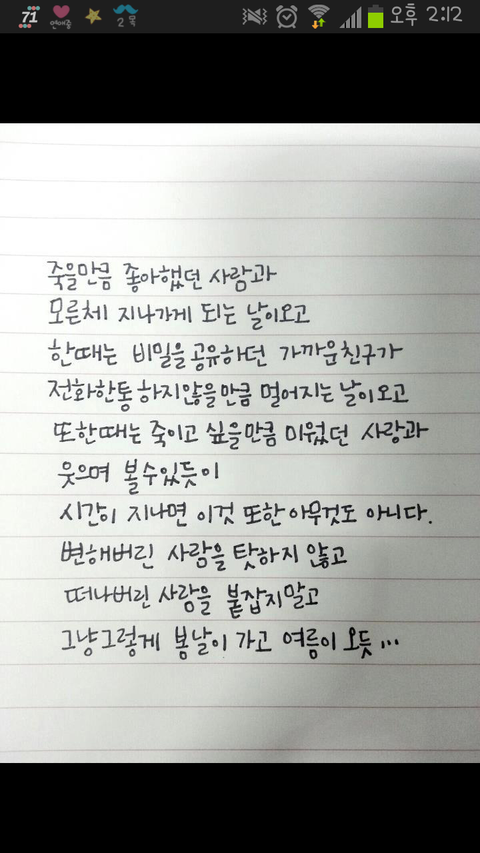 71 연애중 2 목 오후 2:12
죽을만큼 좋아했던 사람과
모른체 지나가게 되는 날이오고
한때는 비밀을 공유하던 가까운친구가
전화한통 하지않을만큼 멀어지는 날이오고
또한때는 죽이고 싶을만큼 미웠던 사람과
웃으며 볼수있듯이
시간이 지나면 이것 또한 아무것도 아니다.
변해버린 사람을 탓하지 않고
떠나버린 사람을 붙잡지말고
그냥그렇게 봄날이 가고 여름이 오듯...